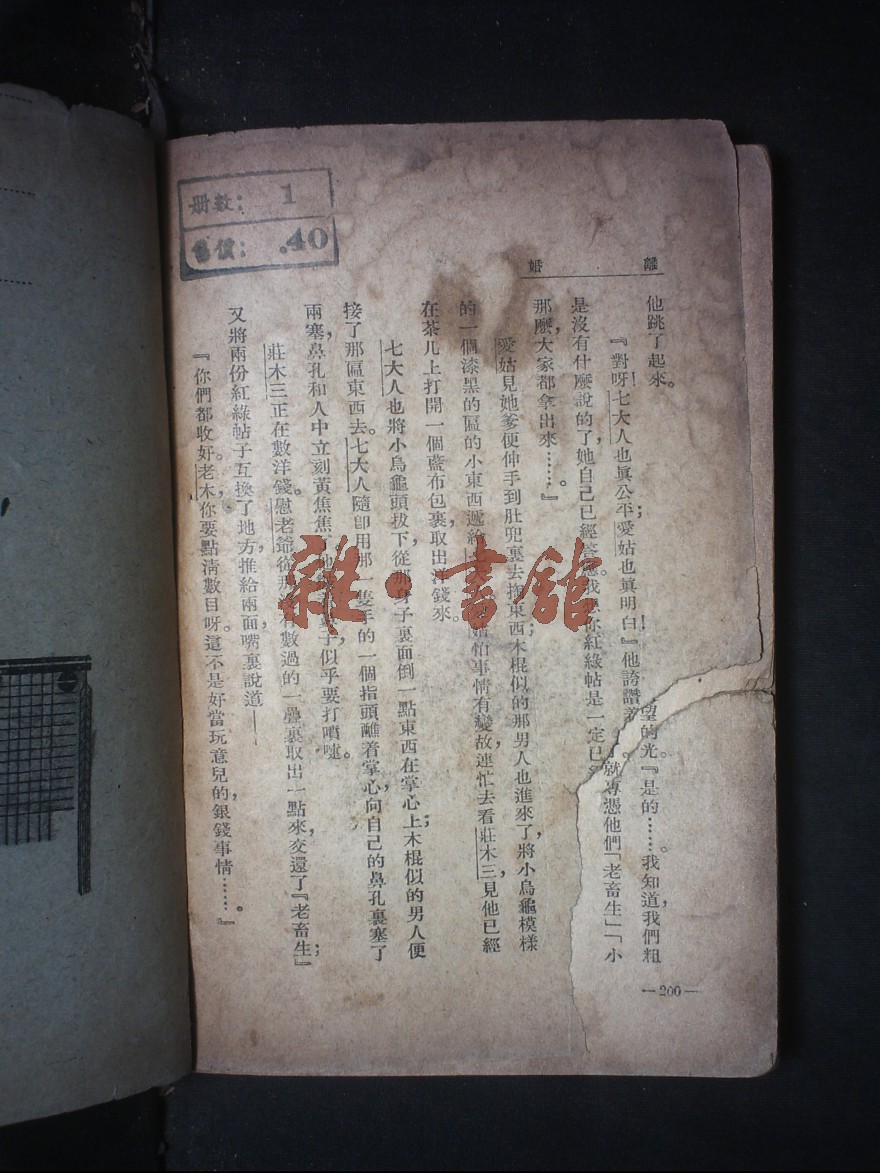 册数: 1
售價: .40
離婚
他跳了起來。
『對呀!七大人也眞公平;愛姑也眞明白!』他誇讚着
望的光。『是的……。我知道,我們粗
是沒有什麼說的了,她自己已經答應。我
你紅綠帖是一定已
就專憑他們「老畜生」「小
那麼,大家都拿出來……。』
愛姑見她爹便伸手到肚兜裏去掏東西;木棍似的那男人也進來了,將小烏龜模樣
的一個漆黑的扁的小東西遞給
怕事情有變故,連忙去看莊木三,見他已經
在茶几上打開一個藍布包裹,取出洋錢來。
七大人也將小烏龜頭拔下,從那身子裏面倒一點東西在掌心上;木棍似的男人便
接了那扁東西去。七大人隨即用那一隻手的一個指頭蘸着掌心,向自己的鼻孔裏塞了
兩塞,鼻孔和人中立刻黃焦焦了。他
子,似乎要打噴嚏。
莊木三正在數洋錢。慰老爺從那
有數過的一疊裏取出一點來,交還了『老畜生』;
又將兩份紅綠帖子互換了地方,推給兩面,嘴裏說道——
『你們都收好。老木,你要點淸數目呀。這不是好當玩意兒的,銀錢事情……。』
—200—
雜·書館